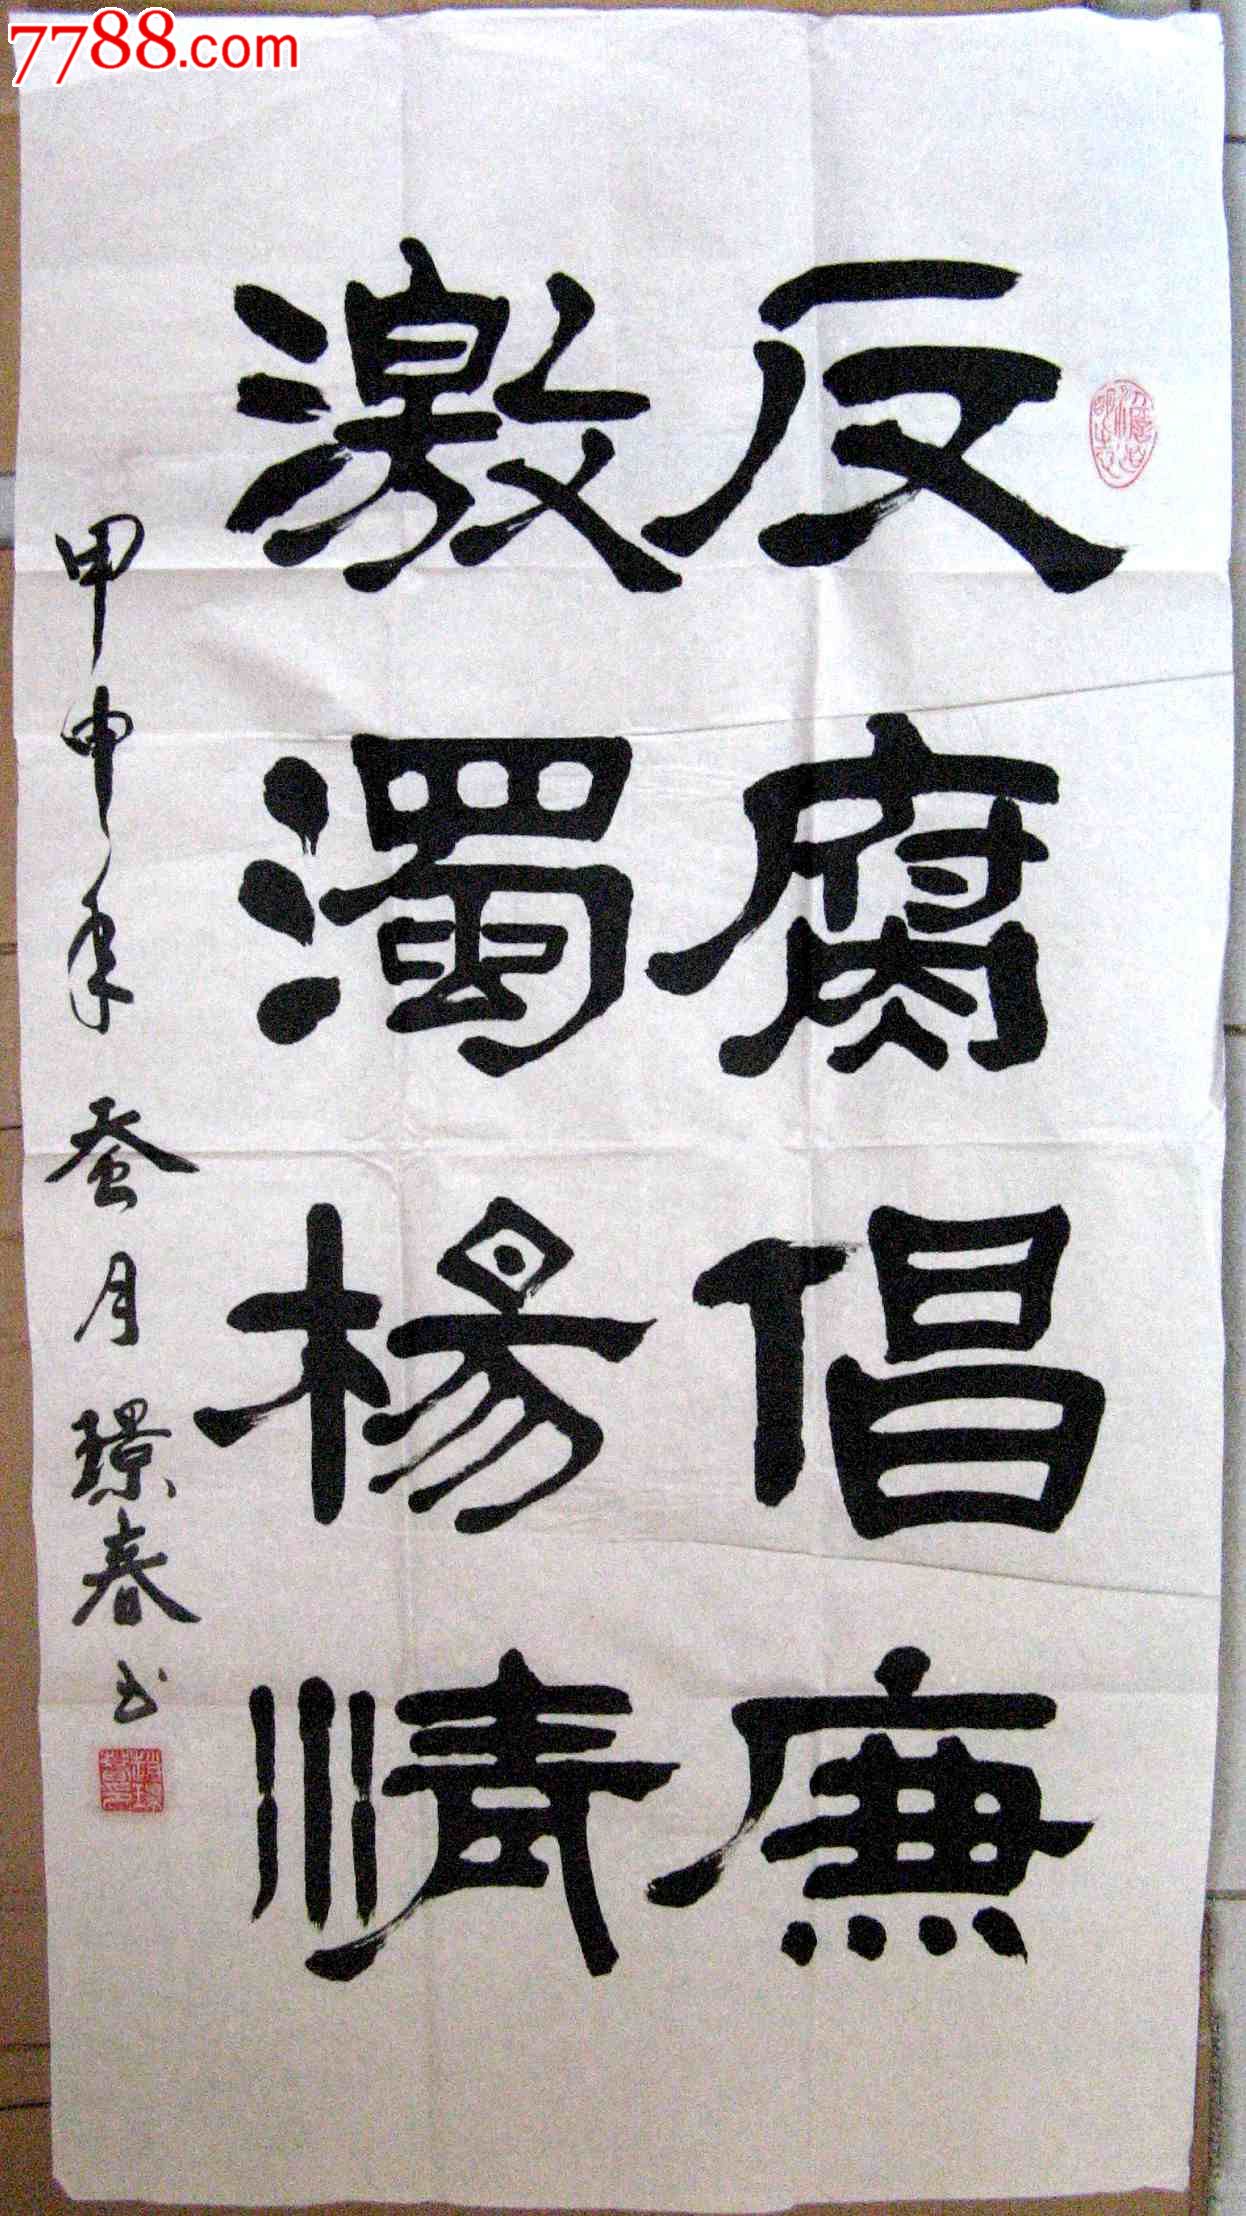 7788.com
反腐倡廉
激濁楊情
甲申年蚕月璟春书